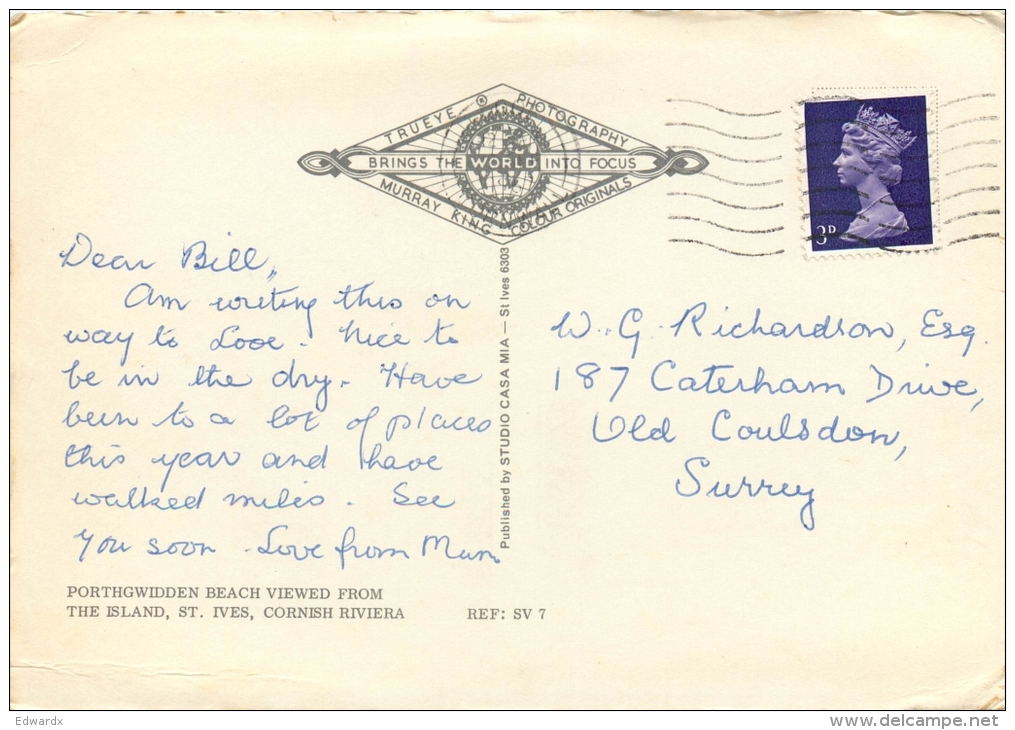 TRUEYE ® PHOTOGRAPHY
BRINGS THE WORLD INTO FOCUS
MURRAY KING COLOUR ORIGINALS
3D
Dear Bill,
Am writing this on
way to Looe. Nice to
be in the dry. Have
been to a lot of places
this year and have
walked miles. See
you soon. Love from Mum
Published by STUDIO CASA MIA — St Ives 6303
W. G. Richardson, Esq.
187 Caterham Drive,
Old Coulsdon,
Surrey
PORTHGWIDDEN BEACH VIEWED FROM
THE ISLAND, ST. IVES, CORNISH RIVIERA REF: SV 7
Edwardx
www.delcampe.net